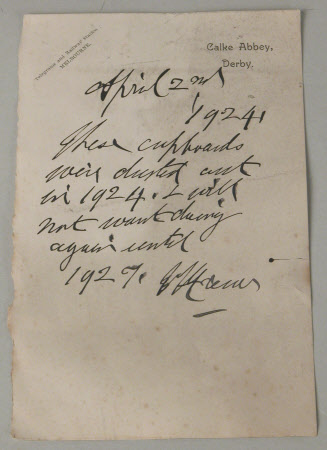 Telegrams and Railway Station
MELBOURNE.
Calke Abbey,
Derby.
April 2nd
1924.
These cupboards
were dusted out
in 1924. & will
not want doing
again until
1927.